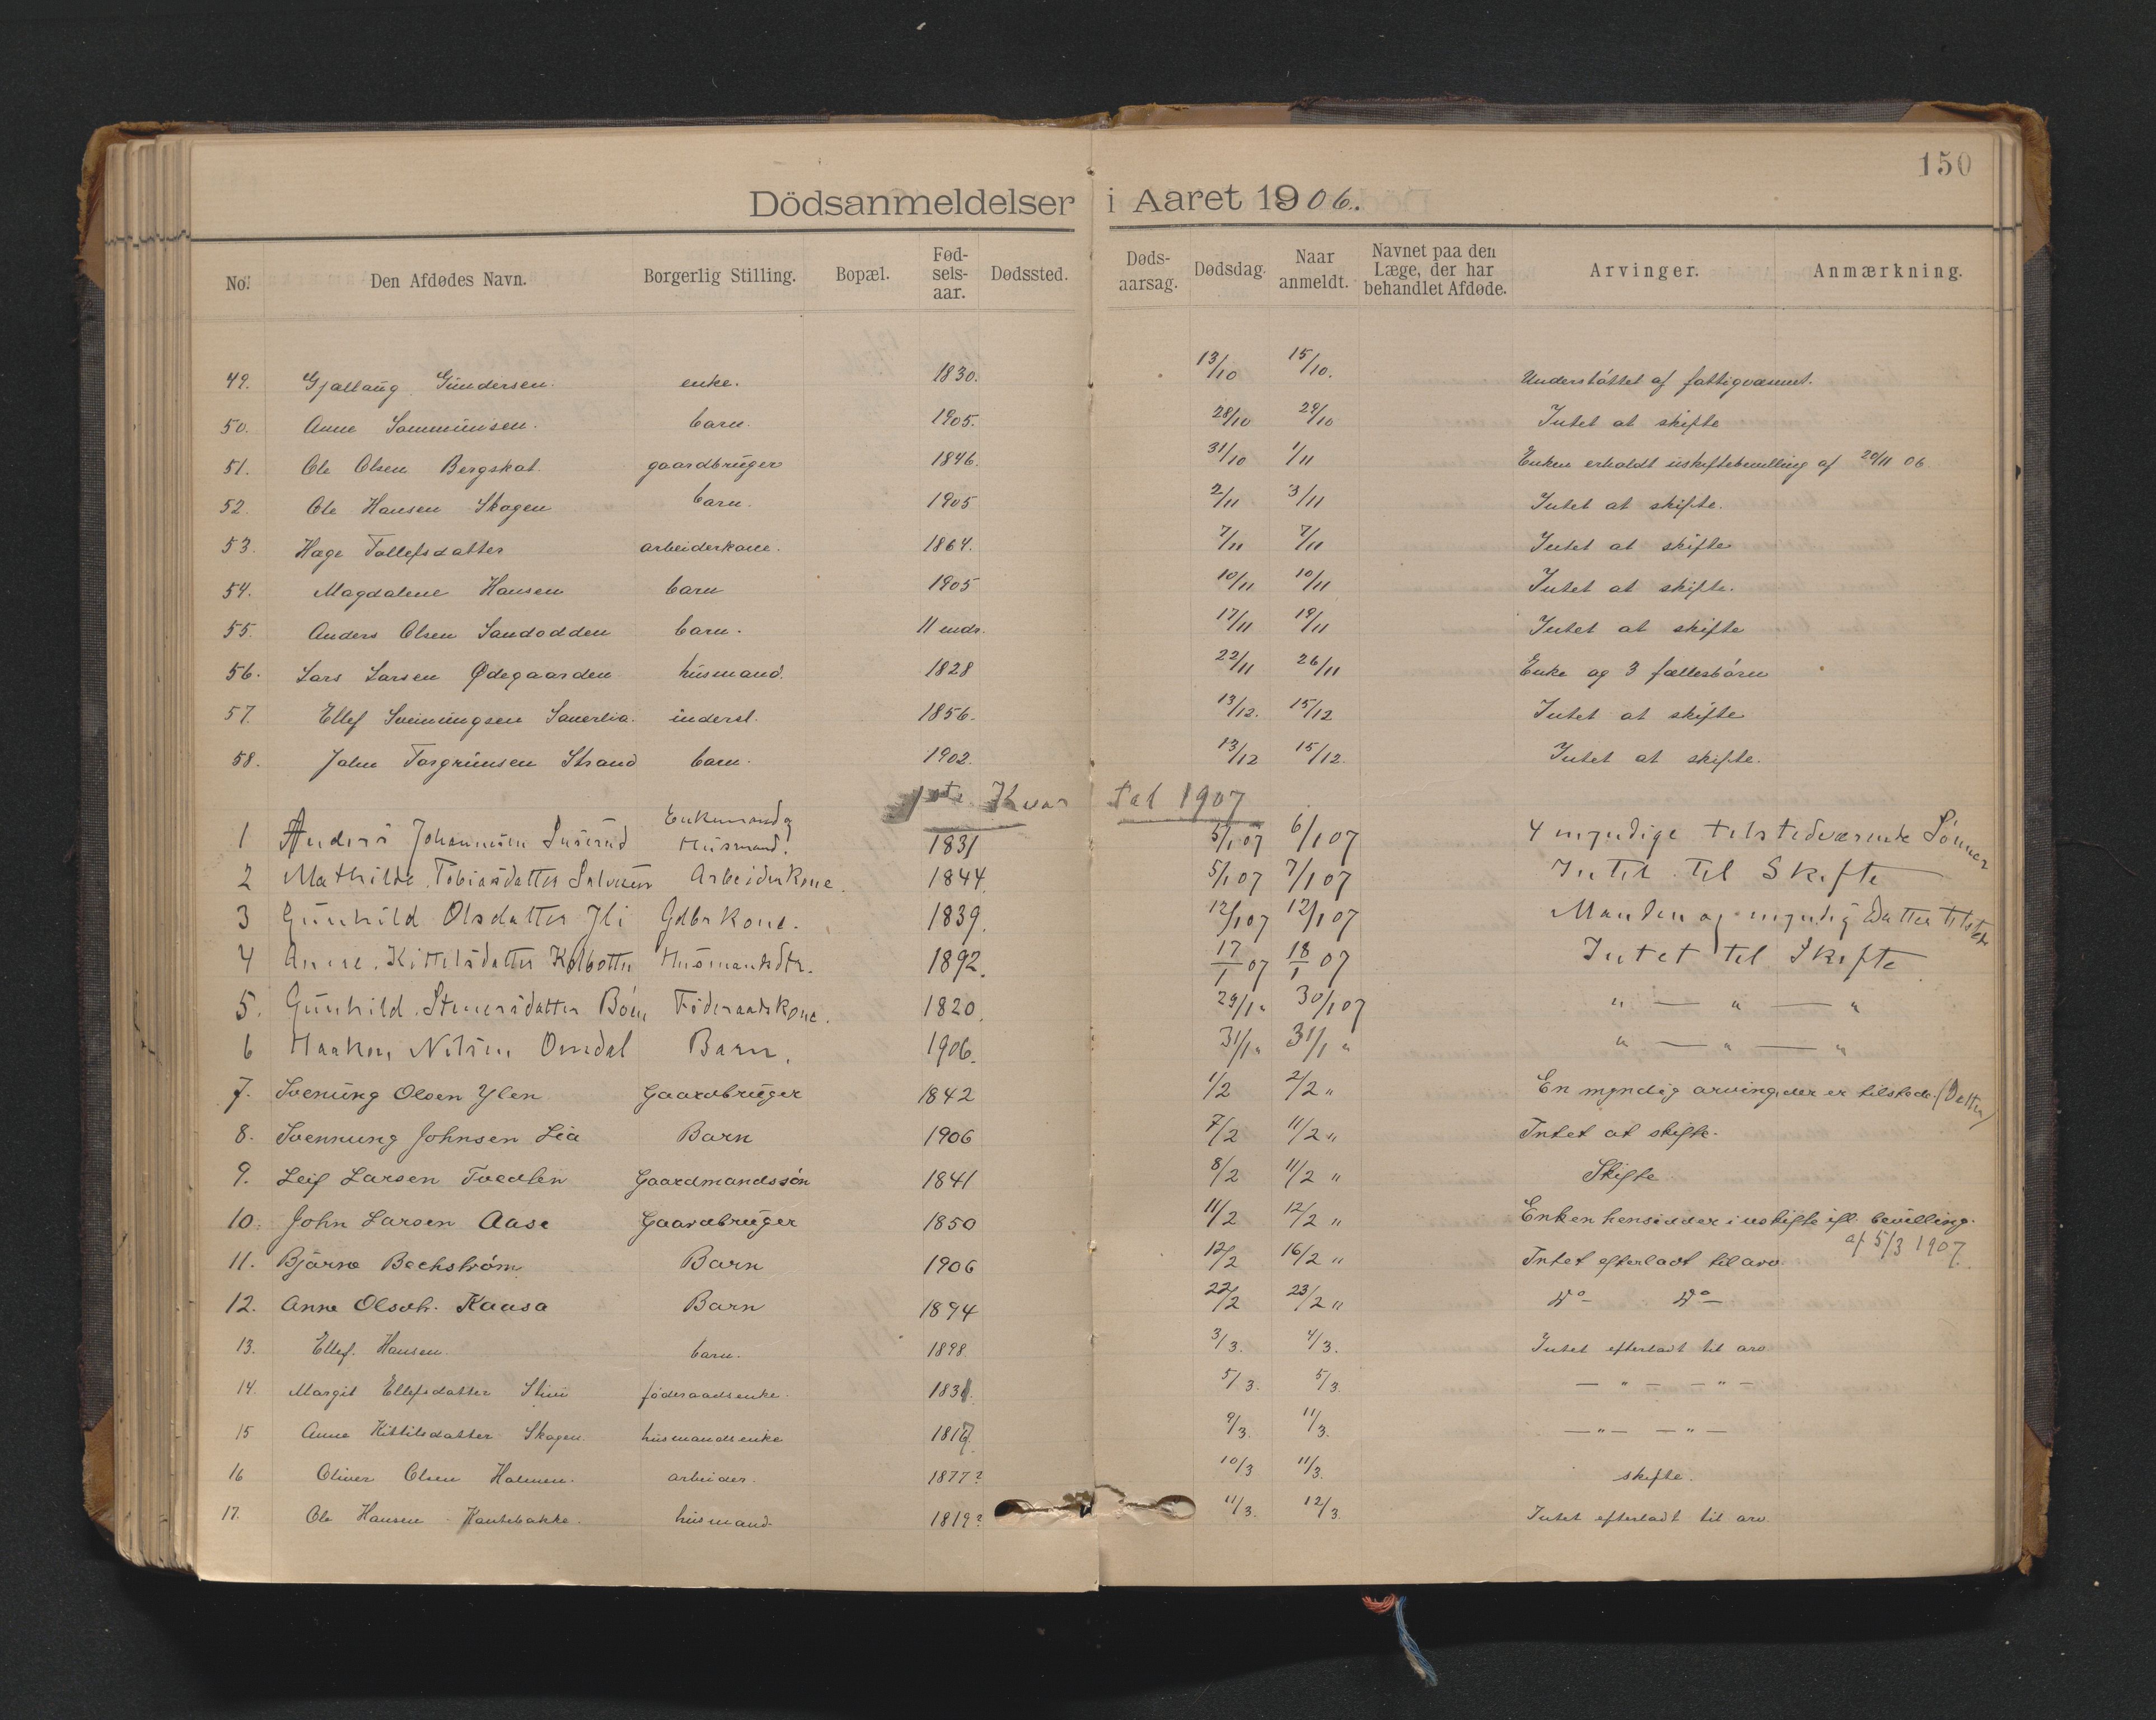 150
Dödsanmeldelser i Aaret 1906.
No. Den Afdødes Navn. Borgerlig Stilling. Bopæl. Fød-sels-aar. Dødssted. Døds-aarsag. Dødsdag. Naar anmeldt. Navnet paa den Læge, der har behandlet Afdøde. Arvinger. Anmærkning.
49. Gjallaug Gundersen. enke. 1830. 13/10 15/10. Understøttet af fattigvæsnet.
50. Anne Sommunsen. barn. 1905. 28/10 29/10 Intet at skifte
51. Ole Olsen Bergskat. gaardbruger 1846. 31/10 1/11 Enken erholdt uskiftebevilling af 20/11 06
52. Ole Hansen Skogen barn. 1905 2/11 3/11 Intet at skifte.
53. Hage Tollefsdatter arbeiderkone. 1864. 7/11 7/11 Intet at skifte
54. Magdalene Hansen barn 1905 10/11 10/11 Intet at skifte.
55. Anders Olsen Sandodden barn. 11 mdr. 17/11 19/11 Intet at skifte
56. Lars Larsen Ødegaarden husmand. 1828 22/11 26/11 Enke og 3 fællesbørn
57. Ellef Sveinungsen inderst. 1856. 13/12. 15/12 Intet at skifte
58. John Torgrimsen Strand barn. 1902. 13/12 15/12. Intet at skifte.
1ste Kvartal 1907
1 Anders Johannesen Enkemand og Husmand. 1831 5/1 07 6/1 07 4 myndige tilstedværende Sönner
2 Mathilde Tobiasdatter Arbeiderkone. 1844. 5/1 07 7/1 07 Intet til Skifte
3 Gunhild Olsdatter Jli Gdbrkone. 1839. 12/1 07 12/1 07 Manden og myndig Datter tilsted
4 Anne Kittelsdatter Kolbotten Husmandsdtr. 1892. 17/1 07 18/1 07 Intet til Skifte
5. Gunhild Stenersdatter Böen Föderaadskone. 1820. 29/1 " 30/1 07 " — " — "
6 Haakon Nilsen Omdal Barn. 1906. 31/1 " 31/1 " " — " — "
7. Svenung Olsen Ylen Gaardbruger 1842 1/2 2/2 " En myndig arving, der er tilstede. (Datter)
8. Svennung Johnsen Lia Barn 1906 7/2 11/2 " Intet at skifte.
9. Leif Larsen Tvedten Gaardmandssön 1841 8/2 11/2 " Skifte
10. John Larsen Aase Gaardbruger 1850 11/2 12/2 " Enken hensidder i uskifte ifl. bevilling.
af 5/3 1907.
11. Bjarne Bechström Barn 1906 12/2 16/2 " Intet efterladt til arv.
12. Anne Olsdt. Kaasa Barn 1894 22/2 23/2 " Do — Do —
13. Ellef Hansen barn. 1898 3/3. 4/3. Intet efterladt til arv
14. Margit Ellefsdatter föderaadsenke. 1831. 5/3. 5/3. — " — — " —
15 Anne Kittilsdatter Skogen. husmandsenke 1817. 9/3. 11/3. — " — — " —
16 Oliver Olsen Holmen. arbeider. 1877? 10/3 11/3. skifte.
17. Ole Hansen Hantebakke. husmand 1819? 11/3. 12/3. Intet efterladt til arv.